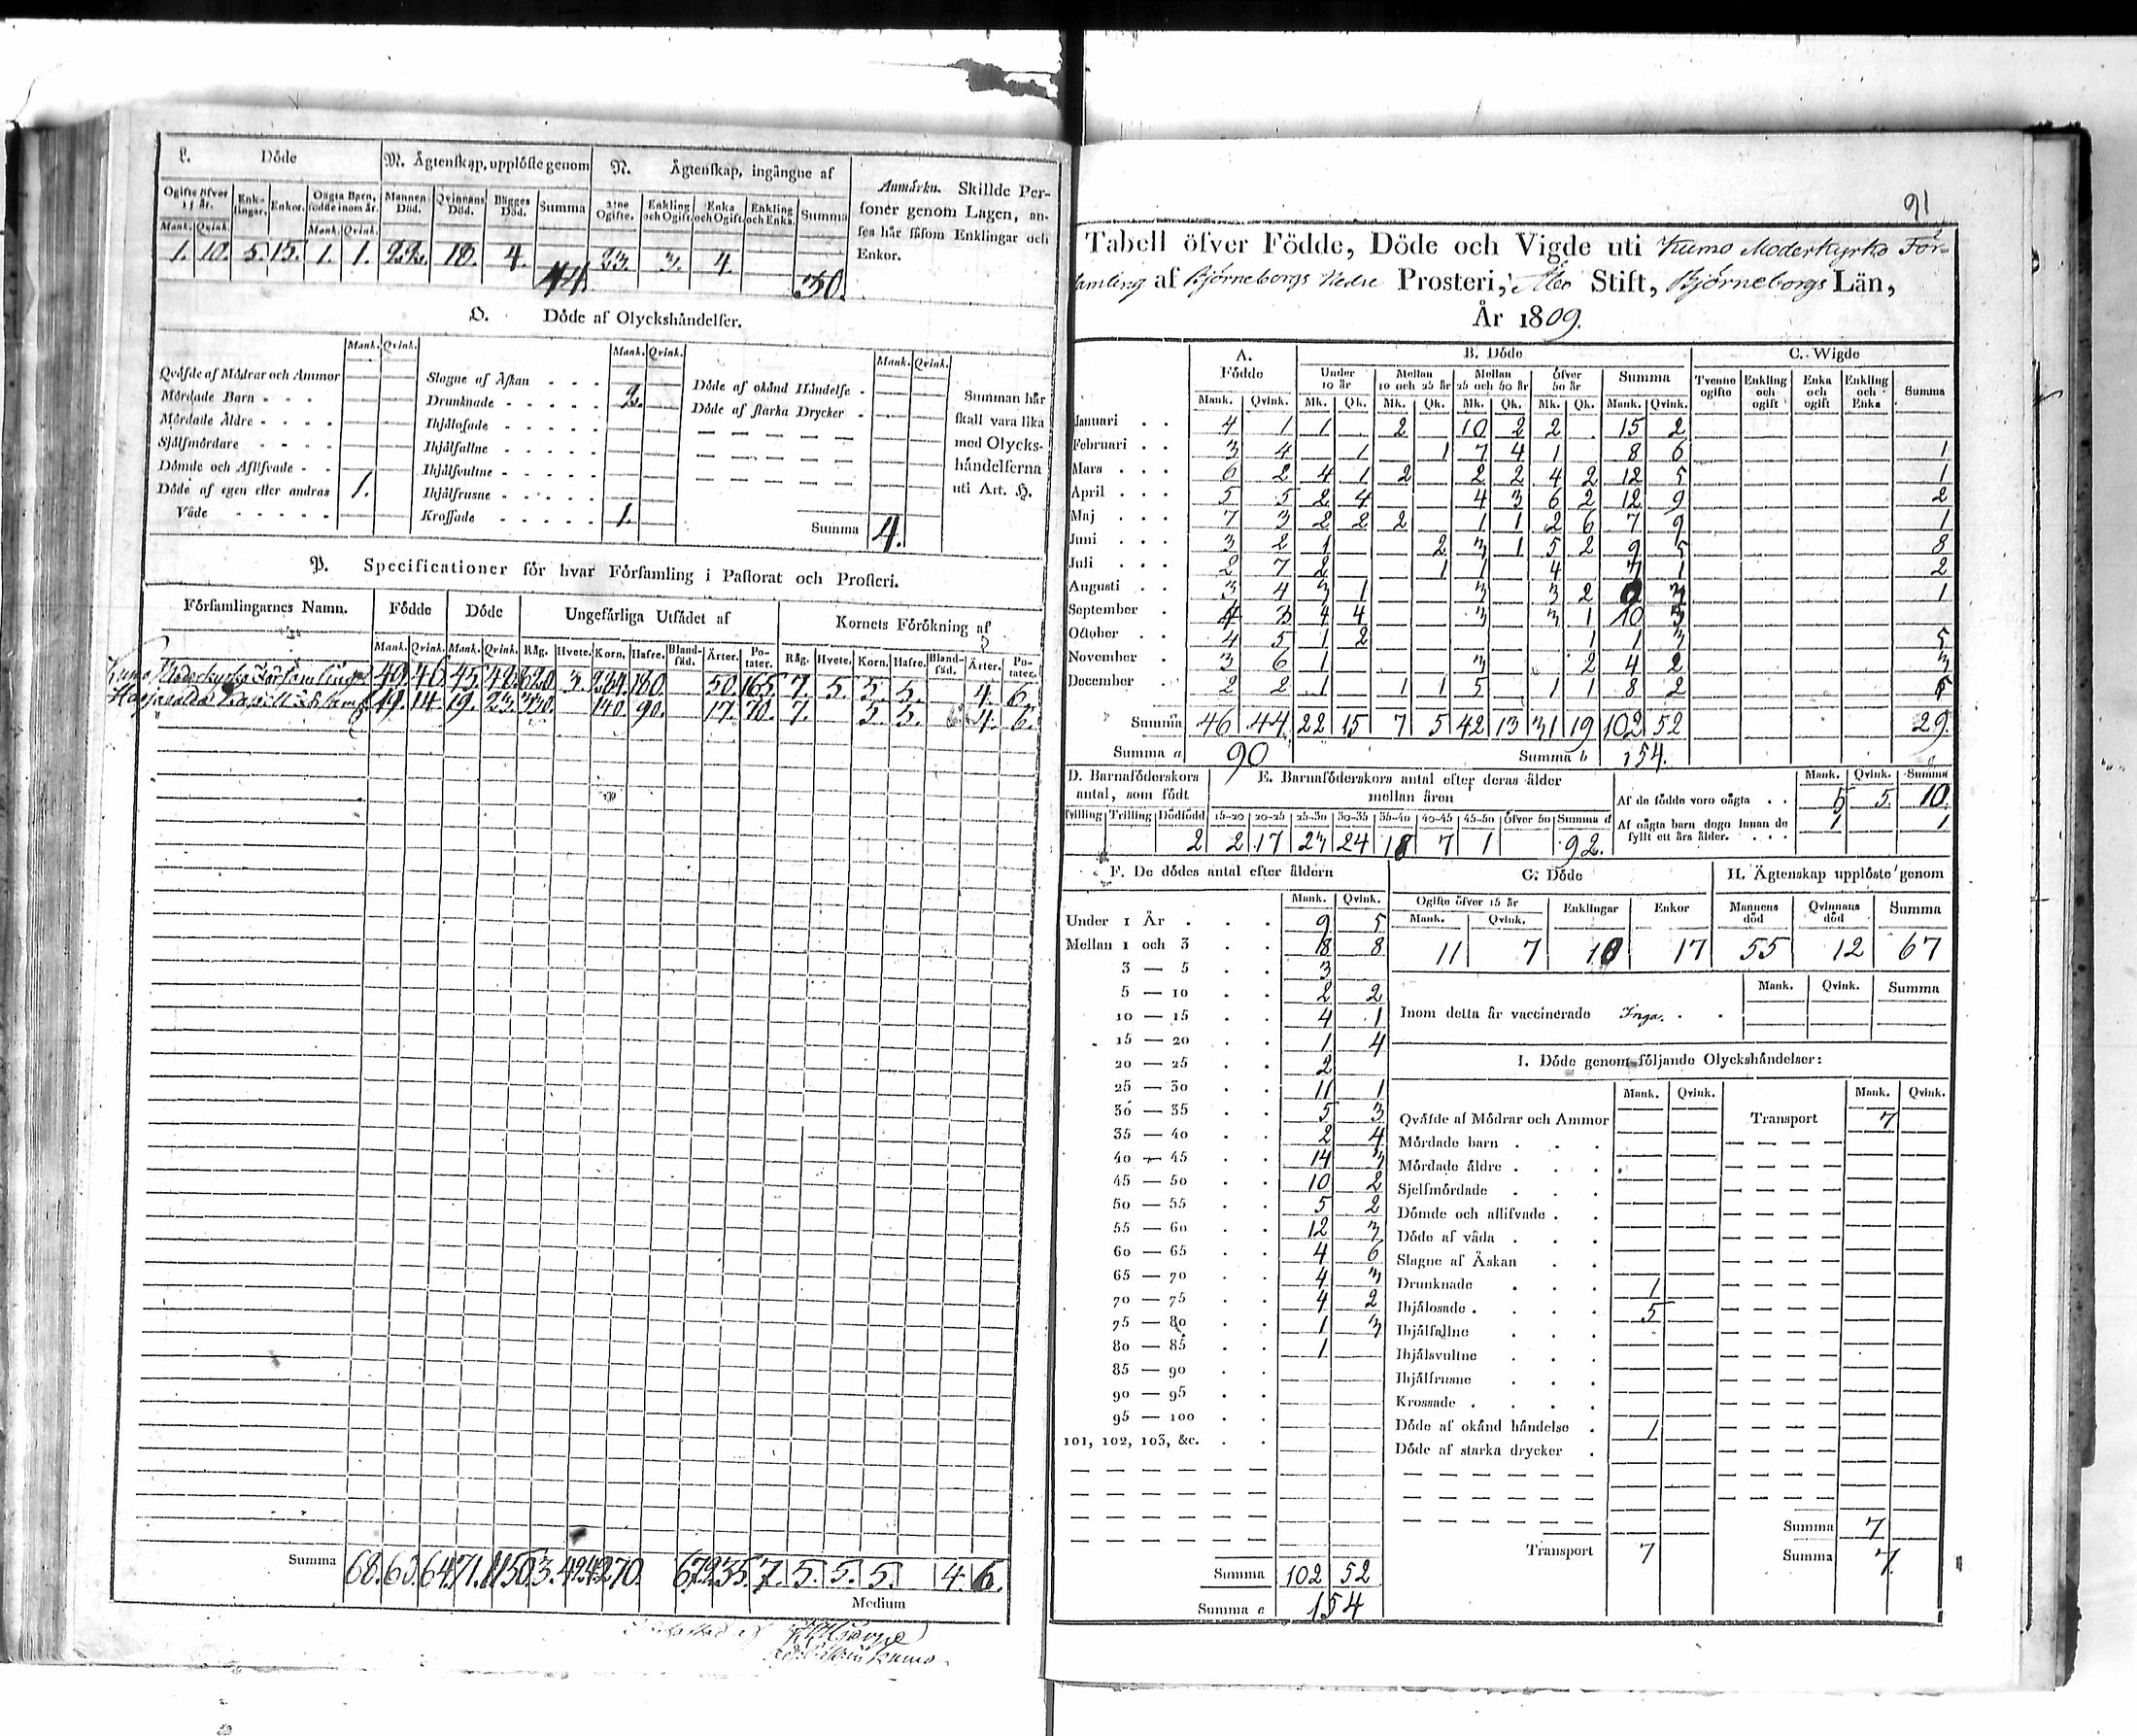 L. Döde
M. Ägtenskap, upplöste genom
N. Ägtenskap, ingångne af
Ogifte öfver 15 år. Enklingar. Enkor. Oägta Barn, födde inom år. Mannens Död. Qvinnans Död. Bägges Död. Summa
2:ne Ogifte. Enkling och Ogift. Enka och Ogift. Enkling och Enka. Summa
Mank. Qvink. Mank. Qvink.
1. 10. 5. 15. 1. 1. 22. 18. 4. 44. 23. 3. 4. 30.
Anmärkn. Skillde Personer genom Lagen, anses här såsom Enklingar och Enkor.
O. Döde af Olyckshändelser.
Mank. Qvink. Mank. Qvink. Mank. Qvink.
Qväfde af Mödrar och Ammor
Mördade Barn
Mördade Äldre
Självmördare
Dömde och Aflifvade
Döde af egen eller andras Våde 1.
Slagne af Åskan
Drunknade 2.
Ihjälosade
Ihjälfallne
Ihjälsvultne
Ihjälfrusne
Krossade 1.
Döde af okänd Händelse
Döde af starka Drycker
Summa 4.
Summan här
skall vara lika
med Olycks-
händelserna
uti Art. H.
P. Specificationer för hvar Församling i Pastorat och Prosteri.
Församlingarnes Namn. Födde Döde Ungefärliga Utsädet af Kornets Förökning af
Mank. Qvink. Mank. Qvink. Råg. Hvete. Korn. Hafre. Blandsäd. Ärter. Potater. Råg. Hvete. Korn. Hafre. Blandsäd. Ärter. Potater.
Kumo Moderkyrko Församling 49. 46. 45. 48. 620. 3. 284. 180. 50. 165. 7. 5. 5. 5. 4. 6.
19. 14. 19. 23. 140. 90. 17. 70. 7. 5. 5. 4. 6.
Summa 68. 60. 64. 71. 1150. 3. 424. 270. 67. 235. 7. 5. 5. 5. 4. 6.
Medium
91
Tabell öfver Födde, Döde och Vigde uti Kumo Moderkyrko För-
samling af Björneborgs Nedre Prosteri, Åbo Stift, Björneborgs Län,
År 1809.
A. Födde B. Döde C. Wigde
Under 10 år Mellan 10 och 25 år Mellan 25 och 50 år Öfver 50 år Summa Tvenne ogifte Enkling och ogift Enka och ogift Enkling och Enka Summa
Mank. Qvink. Mk. Qk. Mk. Qk. Mk. Qk. Mk. Qk. Mank. Qvink.
Januari 4 1 1 2 10 2 2 15 2
Februari 3 4 1 1 7 4 1 8 6 1
Mars 6 2 4 1 2 2 2 4 2 12 5 1
April 5 5 2 4 4 3 6 2 12 9 2
Maj 7 3 2 2 2 1 1 2 6 7 9 1
Juni 3 2 1 2 3 1 5 2 9 5 8
Juli 2 7 2 1 1 4 7 1 2
Augusti 3 4 3 1 3 3 2 3 1
September 4 3 4 4 3 3 1 10 5
October 4 5 1 2 1 1 3 5
November 3 6 1 3 2 4 2 3
December 2 2 1 1 1 5 1 1 8 2
Summa 46 44 22 15 7 5 42 13 31 19 102 52 29.
Summa a 90 Summa b 154.
D. Barnaföderskors antal, som födt
Tvilling Trilling Dödfödd
2
E. Barnaföderskors antal efter deras ålder mellan åren
15-20 20-25 25-30 30-35 35-40 40-45 45-50 Öfver 50 Summa d
2 17 23 24 18 7 1 92.
Mank. Qvink. Summa
Af de födde voro oägta 5 5. 10.
Af oägta barn dogo innan de fyllt ett års ålder. 1 1.
F. De dödes antal efter åldern
Mank. Qvink.
Under 1 År 9 5
Mellan 1 och 3 18 8
3 — 5 3
5 — 10 2 2
10 — 15 4 1
15 — 20 1 4
20 — 25 2
25 — 30 11 1
30 — 35 5 3
35 — 40 2 4
40 — 45 14 3
45 — 50 10 2
50 — 55 5 2
55 — 60 12 3
60 — 65 4 6
65 — 70 4 3
70 — 75 4 2
75 — 80 1 3
80 — 85 1
85 — 90
90 — 95
95 — 100
101, 102, 103, &c.
Summa 102 52
Summa e 154
G. Döde
Ogifte öfver 15 år Enklingar Enkor
Mank. Qvink.
11 7 10 17
H. Ägtenskap upplöste genom
Mannens död Qvinnans död Summa
55 12 67
Mank. Qvink. Summa
Inom detta år vaccinerade Inga.
I. Döde genom följande Olyckshändelser:
Mank. Qvink. Mank. Qvink.
Qväfde af Mödrar och Ammor Transport 7
Mördade barn
Mördade äldre
Sjelfmördade
Dömde och aflifvade
Döde af våda
Slagne af Åskan
Drunknade 1
Ihjälosade 5
Ihjälfallne
Ihjälsvultne
Ihjälfrusne
Krossade
Döde af okänd händelse 1
Döde af starka drycker
Summa 7
Transport 7 Summa 7.